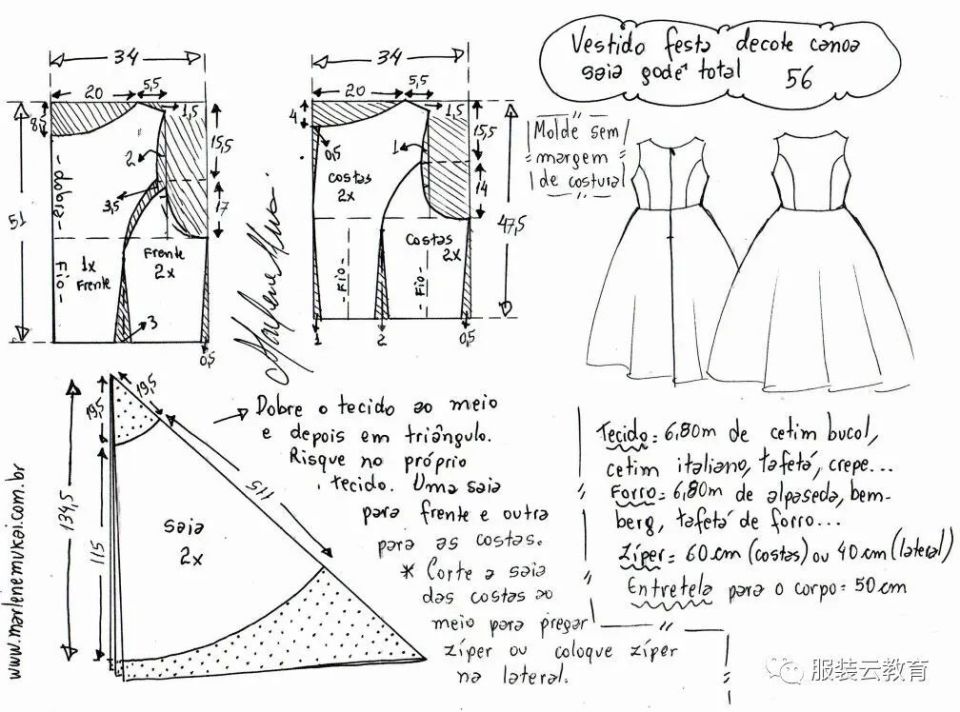 Vestido festa decote canoa
saia godê total 56
Molde sem
margem
de costura
34
20
5,5
8,5
1,5
15,5
2
3,5
17
51
- dobra -
Fio -
1x
Frente
Frente
2x
3
0,5
34
20
5,5
4
1,5
0,5
1
15,5
costas
2x
14
47,5
Costas
2x
- Fio -
- Fio -
1
2
0,5
19,5
19,5
115
134,5
115
saia
2x
Dobre o tecido ao meio
e depois em triângulo.
Risque no próprio
tecido. Uma saia
para frente e outra
para as costas.
* Corte a saia
das costas ao
meio para pregar
zíper ou coloque zíper
na lateral.
Tecido = 6,80m de cetim bucol,
cetim italiano, tafetá, crepe...
Forro = 6,80m de alpaseda, bem-
berg, tafetá de forro...
Zíper = 60cm (costas) ou 40cm (lateral)
Entretela para o corpo = 50cm
www.marlenemukai.com.br
服装云教育